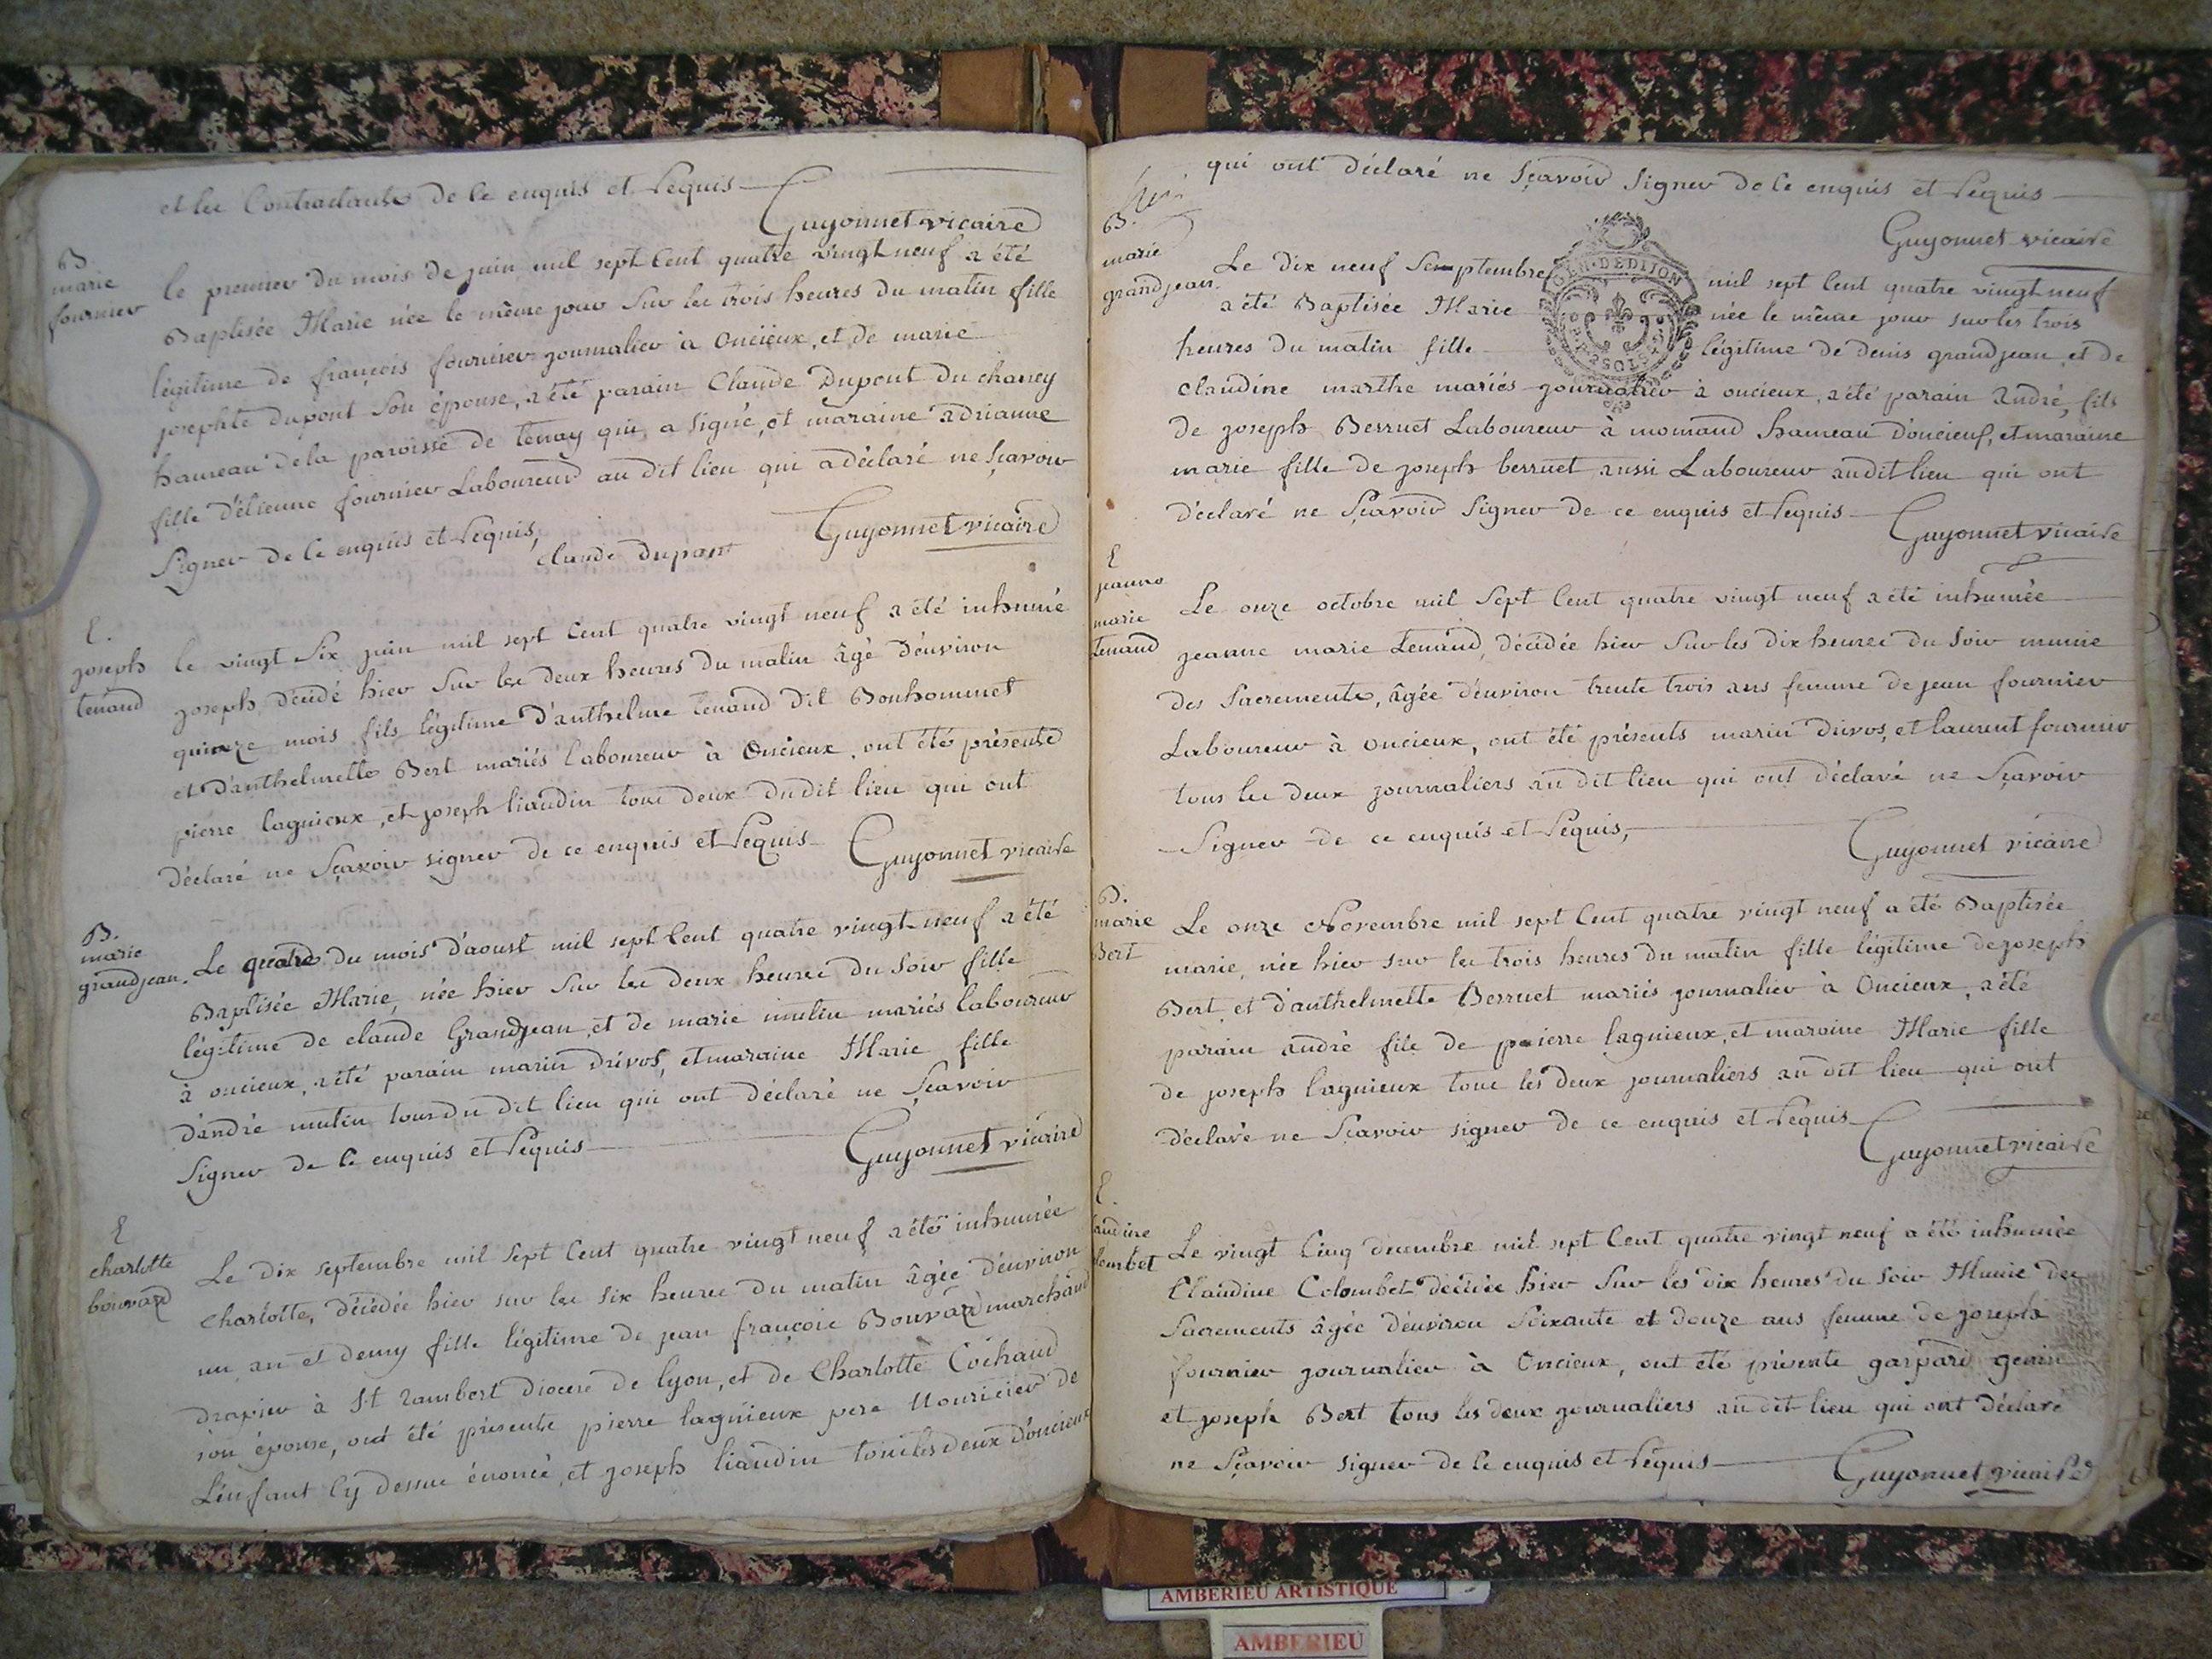 et les Contractants de ce enquis et requis
Guyonnet vicaire
B.
marie
fournier
le premier du mois de juin mil sept cent quatre vingt neuf a été
Baptisée Marie née le même jour sur les trois heures du matin fille
légitime de françois fournier journalier à Oncieux, et de marie
josephte dupont son épouse, a été parain Claude Dupont du chaney
hameau de la paroisse de tenay qui a signé, et maraine adrianne
fille d'étienne fournier Laboureur au dit lieu qui a déclaré ne sçavoir
signer de ce enquis et requis,
claude dupant
Guyonnet vicaire
E.
joseph
tenand
le vingt six juin mil sept cent quatre vingt neuf a été inhumé
joseph, décédé hier sur les deux heures du matin âgé d'environ
quinze mois fils légitime d'anthelme tenand dit Bonhommet
et d'anthelmette Bert mariés laboureur à Oncieux, ont été présents
pierre lagnieux, et joseph liaudin tous deux du dit lieu qui ont
déclaré ne sçavoir signer de ce enquis et requis
Guyonnet vicaire
B.
marie
grandjean.
Le quatre du mois d'aoust mil sept cent quatre vingt neuf a été
Baptisée Marie, née hier sur les deux heures du soir fille
légitime de claude Grandjean, et de marie mulin mariés laboureur
à oncieux, a été parain marin drivos, et maraine Marie fille
d'andré mulin tous du dit lieu qui ont déclaré ne sçavoir
signer de ce enquis et requis
Guyonnet vicaire
E
charlotte
bouvard
Le dix septembre mil sept cent quatre vingt neuf a été inhumée
charlotte, décédée hier sur les six heures du matin âgée d'environ
un an et demy fille légitime de jean françois Bouvard marchand
drapier à St rambert diocese de lyon, et de Charlotte Cochaud
son épouse, ont été présents pierre lagnieux pere nouricier de
l'enfant cy dessus énoncé, et joseph liaudin tous les deux d'oncieux
qui ont déclaré ne sçavoir signer de ce enquis et requis
Guyonnet vicaire
B.
marie
grandjean.
GEN. DE DIJON
Le dix neuf septembre mil sept cent quatre vingt neuf
a été Baptisée Marie née le même jour sur les trois
heures du matin fille légitime de denis grandjean et de
claudine marthe mariés journalier à oncieux, a été parain andré, fils
de joseph Berruet Laboureur à momand hameau d'oncieux, et maraine
marie fille de joseph berruet aussi Laboureur au dit lieu qui ont
déclaré ne sçavoir signer de ce enquis et requis
Guyonnet vicaire
E
jeanne
marie
tenand
Le onze octobre mil sept cent quatre vingt neuf a été inhumée
jeanne marie tenand, décédée hier sur les dix heures du soir munie
des sacrements, âgée d'environ trente trois ans femme de jean fournier
Laboureur à oncieux, ont été présents marin drivos, et laurent fournier
tous les deux journaliers au dit lieu qui ont déclaré ne sçavoir
signer de ce enquis et requis,
Guyonnet vicaire
B.
marie
Bert
Le onze Novembre mil sept cent quatre vingt neuf a été Baptisée
marie, née hier sur les trois heures du matin fille légitime de joseph
Bert, et d'anthelmette Berruet mariés journalier à Oncieux, a été
parain andré fils de pierre lagnieux, et maraine Marie fille
de joseph lagnieux tous les deux journaliers au dit lieu qui ont
déclaré ne sçavoir signer de ce enquis et requis
Guyonnet vicaire
E.
audine
lombet
Le vingt cinq decembre mil sept cent quatre vingt neuf a été inhumée
Claudine Colombet décédée hier sur les dix heures du soir Munie des
Sacrements âgée d'environ soixante et douze ans femme de joseph
fournier journalier à Oncieux, ont été présents gaspard genin
et joseph Bert tous les deux journaliers au dit lieu qui ont déclaré
ne sçavoir signer de ce enquis et requis
Guyonnet vicaire
AMBERIEU ARTISTIQUE
AMBERIEU